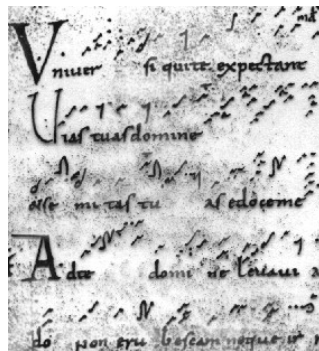 Univer si qui te expectant
Uias tuas domine
mi tas tu as edoceme
Adte domi ne levavi a
do non eru bescam neque ir